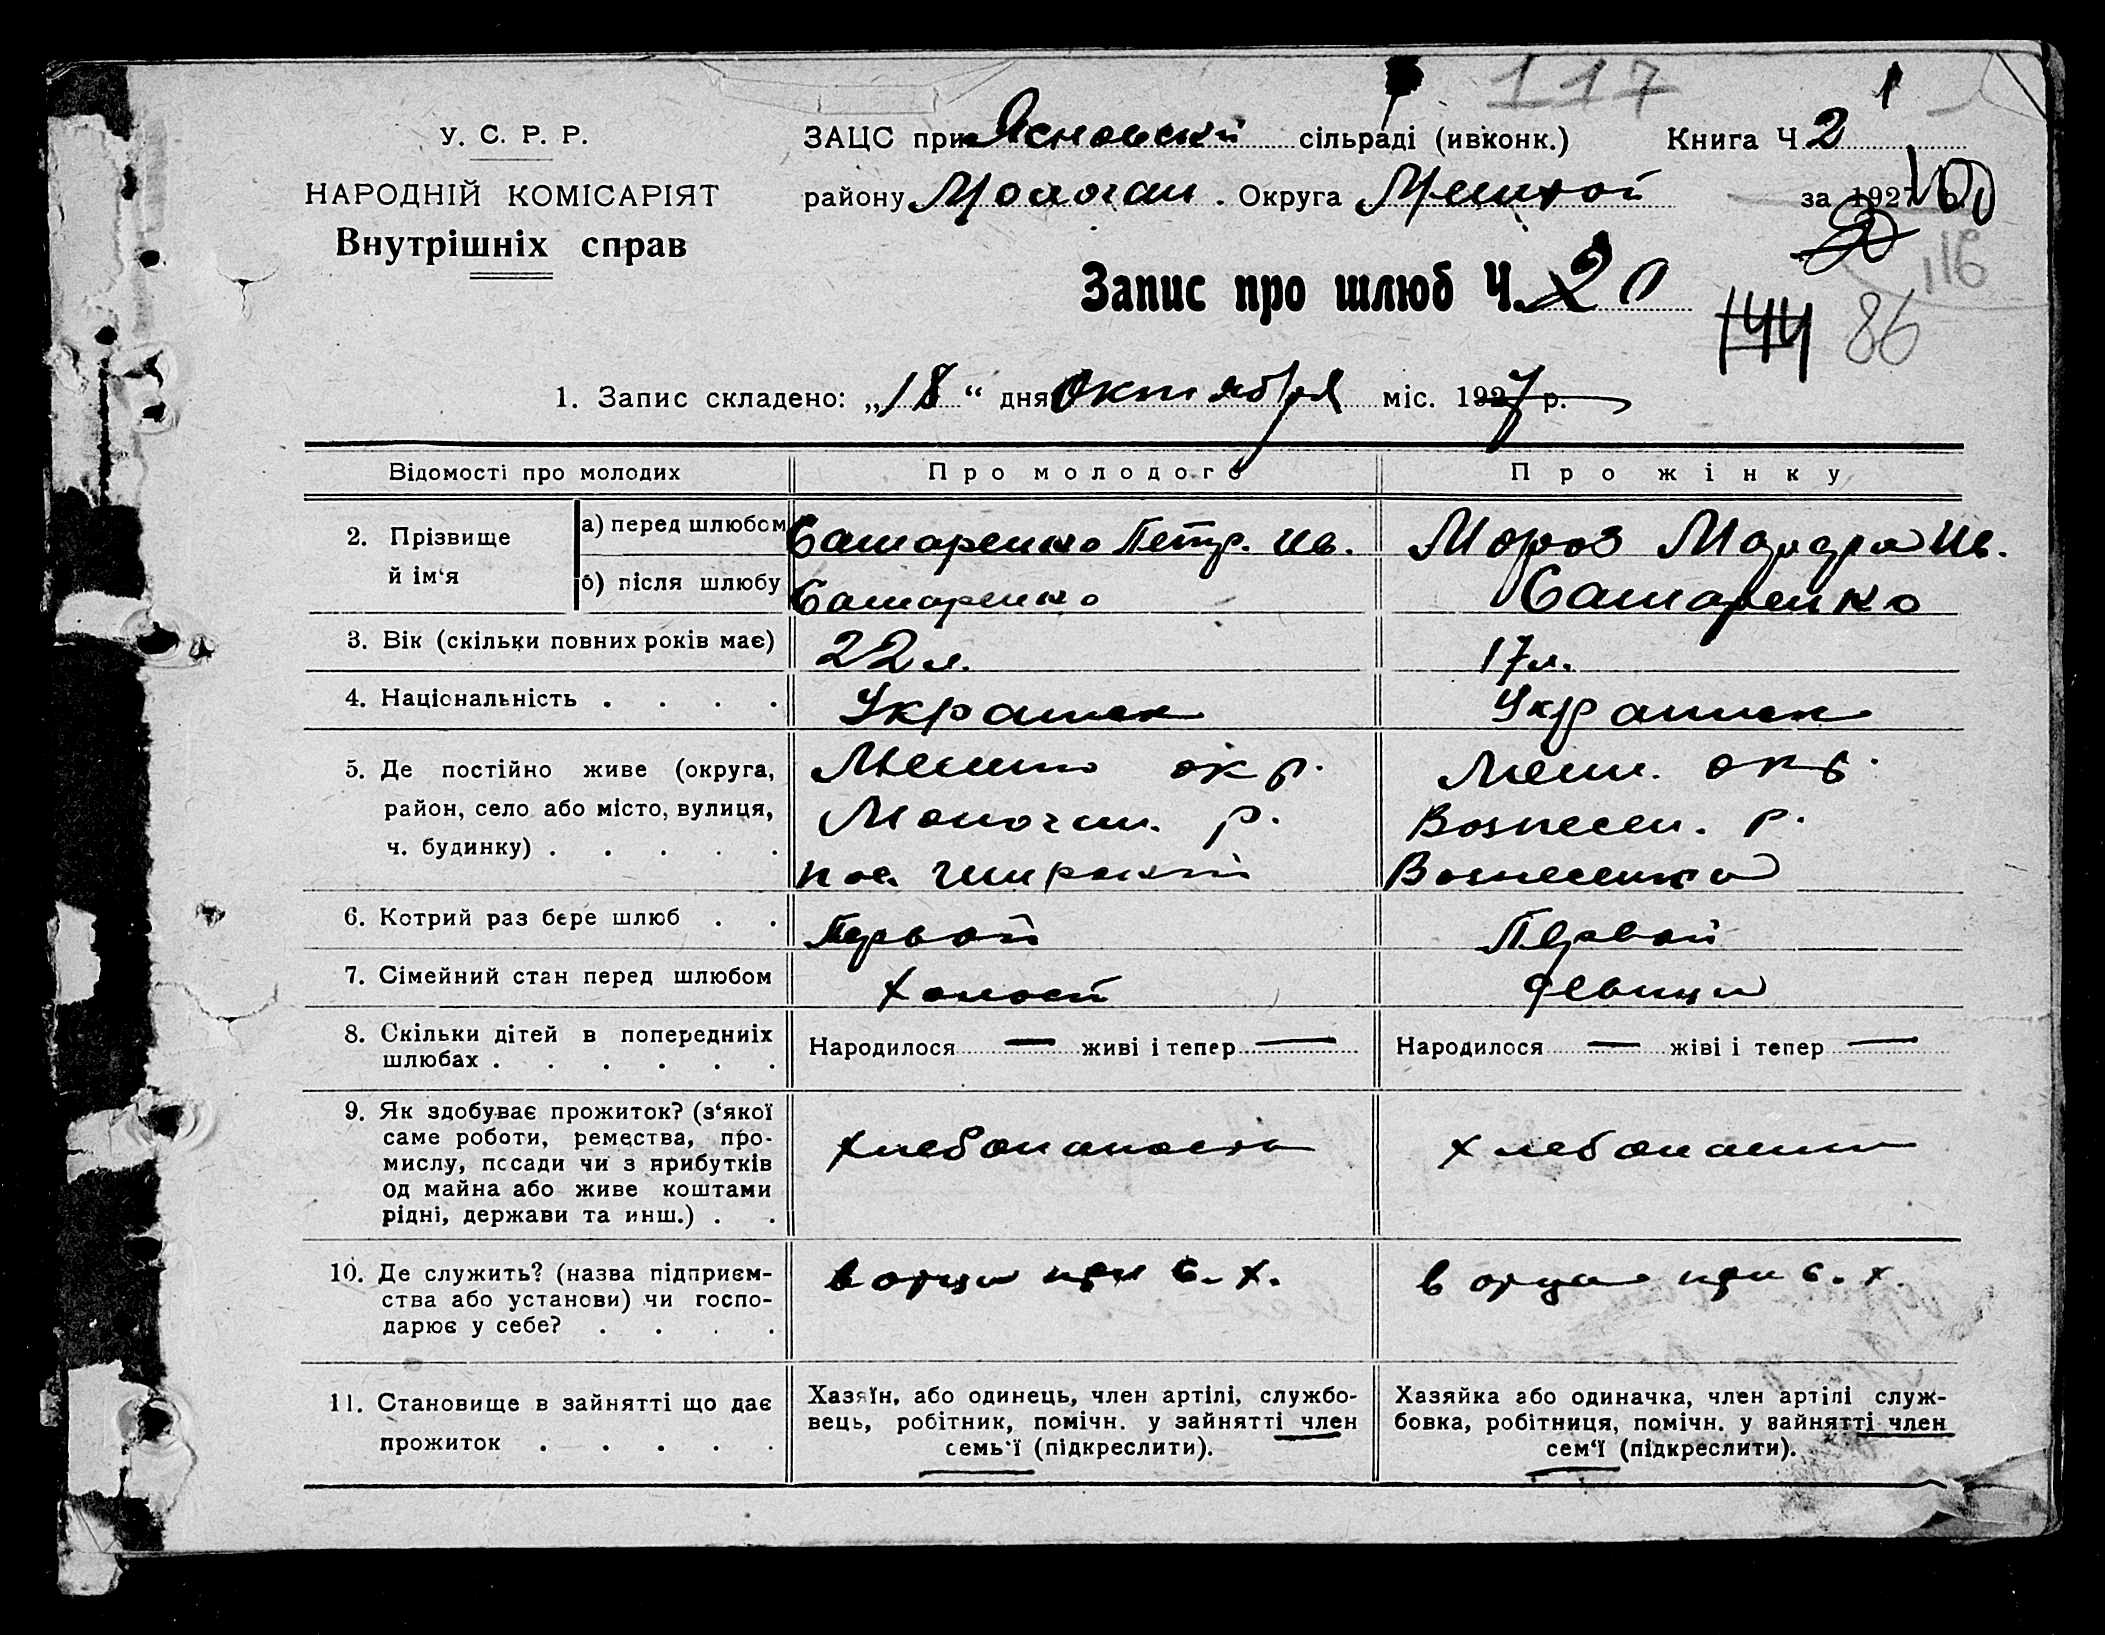 117
1
У. С. Р. Р.
НАРОДНІЙ КОМІСАРІЯТ
Внутрішніх справ
ЗАЦС при Ясновскій сільраді (ивіконк.) Книга Ч 2
району Молочан. Округа за 1927
116
Запис про шлюб Ч. 20
144 86
1. Запис складено: „18“ дня Октября міс. 1927 р.
Відомості про молодих Про молодого Про жінку
2. Прізвище й ім‘я
а) перед шлюбом Сашаренко Петр. Ив. Мороз Ив.
б) після шлюбу Сашаренко Сашаренко
3. Вік (скільки повних років має) 22 л. 17 л.
4. Національність . . . . Украинск Украинск
5. Де постійно живе (округа, район, село або місто, вулиця, ч. будинку) . . . . .
Мелито окр. Мелит. окр.
Молочан. р. Вознесен. р.
пос. Вознесенка
6. Котрий раз бере шлюб . . Первой Первой
7. Сімейний стан перед шлюбом Холост девица
8. Скільки дітей в попередниіх шлюбах . . . . . .
Народилося — живі і тепер — Народилося — жіві і тепер —
9. Як здобуває прожиток? (з‘якої
саме роботи, ремества, про-
мислу, посади чи з прибутків
од майна або живе коштами
рідні, держави та инш.) . .
хлебопашество хлебопаш
10. Де служить? (назва підприєм-
ства або установи) чи госпо-
дарює у себе? . . . .
в отца при с. х. в отца при с. х.
11. Становище в зайнятті що дає
прожиток . . . . .
Хазяїн, або одинець, член артілі, службо-
вець, робітник, помічн. у зайнятті член
семь‘ї (підкреслити).
Хазяйка або одиначка, член артілі служ-
бовка, робітниця, помічн. у зайнятті член
сем‘ї (підкреслити).